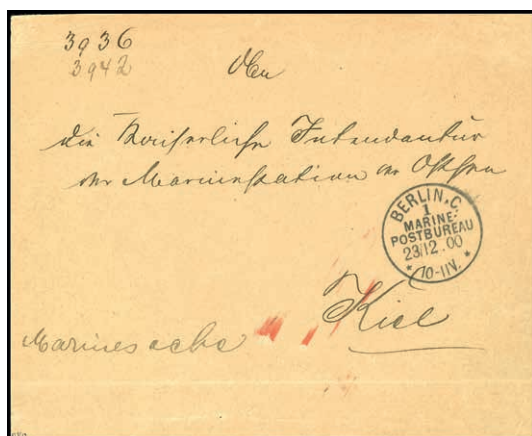 3936
3942
An
die Kaiserliche Intendantur
der Marinestation der Ostsee
BERLIN.C.
1
MARINE-
POSTBUREAU
23/12.00
* 10-11V. *
Kiel
Marinesache